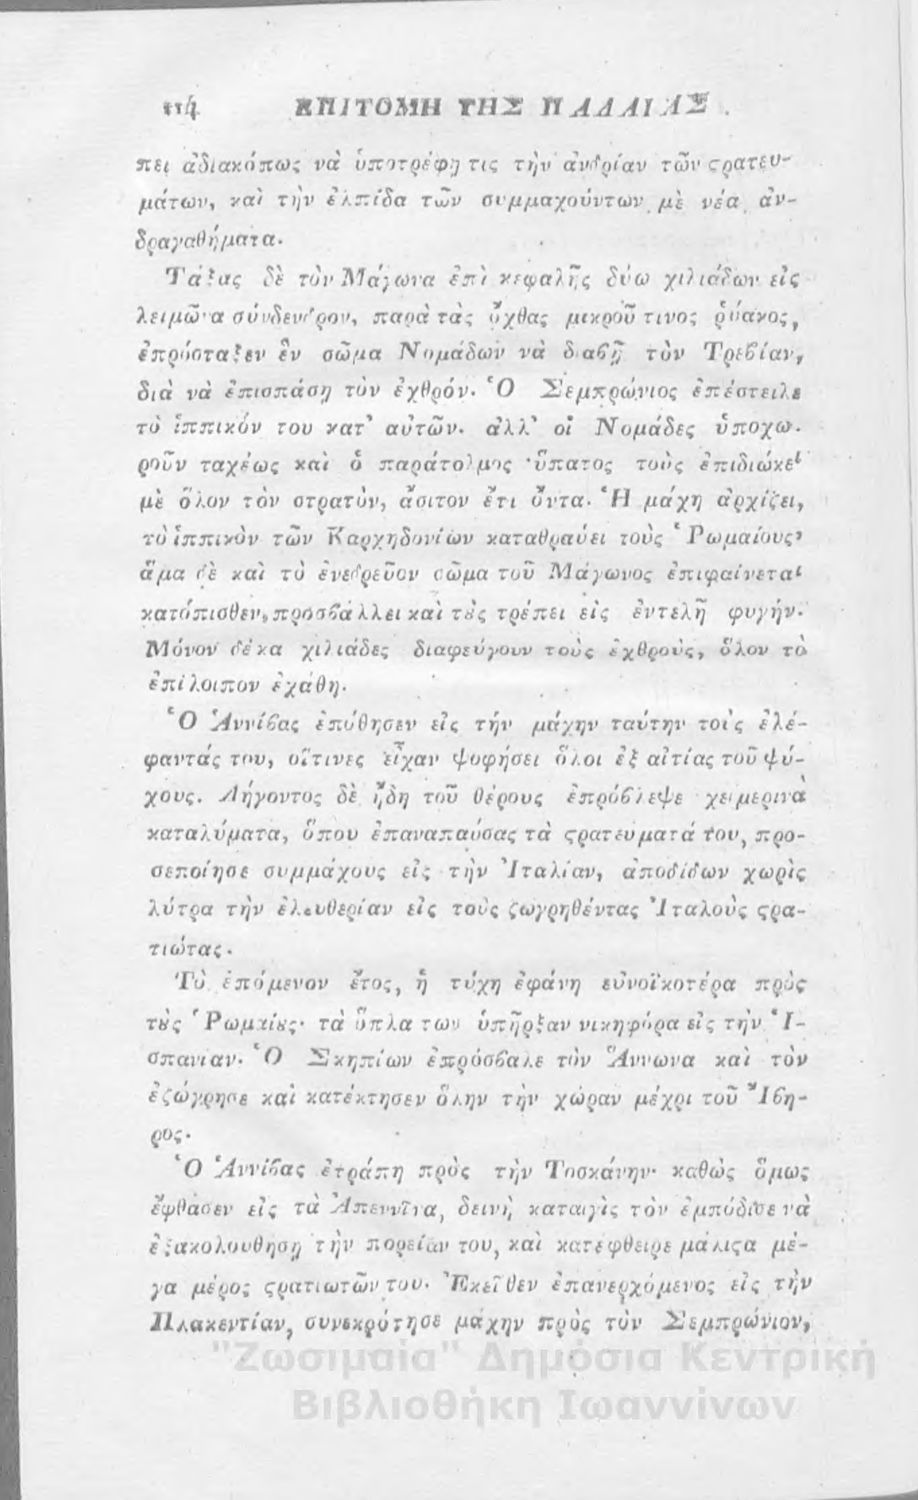 114 ΕΠΙΤΟΜΗ ΤΗΣ ΠΑΛΑΙΑΣ.
πει ἀδιακόπως νὰ ὑποτρέφῃ τις τὴν ἀνδρίαν τῶν ϛρατευ-
μάτων, καὶ τὴν ἐλπίδα τῶν συμμαχούντων μὲ νέα ἀν-
δραγαθήματα.
Τάξας δὲ τὸν Μάγωνα ἐπὶ κεφαλῆς δύω χιλιάδων εἰς
λειμῶνα σύνδενδρον, παρὰ τὰς ὄχθας μικροῦ τινος ῥύακος,
ἐπρόσταξεν ἓν σῶμα Νομάδων νὰ διαβῇ τὸν Τρεβίαν,
διὰ νὰ ἐπισπάσῃ τὸν ἐχθρόν. Ὁ Σεμπρώνιος ἐπέστειλε
τὸ ἱππικόν του κατ' αὐτῶν. ἀλλ' οἱ Νομάδες ὑποχω-
ροῦν ταχέως καὶ ὁ παράτολμος ὕπατος τοὺς ἐπιδιώκει
μὲ ὅλον τὸν στρατὸν, ἄσιτον ἔτι ὄντα. Ἡ μάχη ἀρχίζει,
τὸ ἱππικὸν τῶν Καρχηδονίων καταθραύει τοὺς Ῥωμαίους,
ἅμα δὲ καὶ τὸ ἐνεδρεῦον σῶμα τοῦ Μάγωνος ἐπιφαίνεται
κατόπισθεν, προσβάλλει καὶ τȣ̀ς τρέπει εἰς ἐντελῆ φυγήν.
Μόνον δέκα χιλιάδες διαφεύγουν τοὺς ἐχθροὺς, ὅλον τὸ
ἐπίλοιπον ἐχάθη.
Ὁ Ἀννίβας ἐπόθησεν εἰς τὴν μάχην ταύτην τοὺς ἐλέ-
φαντάς του, οἵτινες εἶχαν ψοφήσει ὅλοι ἐξ αἰτίας τοῦ ψύ-
χους. Λήγοντος δὲ ἤδη τοῦ θέρους ἐπρόβλεψε χειμερινὰ
καταλύματα, ὅπου ἐπαναπαύσας τὰ ϛρατευματά του, προ-
σεποίησε συμμάχους εἰς τὴν Ἰταλίαν, ἀποδίδων χωρὶς
λύτρα τὴν ἐλευθερίαν εἰς τοὺς ζωγρηθέντας Ἰταλοὺς ϛρα-
τιώτας.
Τὸ ἑπόμενον ἔτος, ἡ τύχη ἐφάνη εὐνοϊκοτέρα πρὸς
τȣ̀ς Ῥωμαίȣς· τὰ ὅπλα των ὑπῆρξαν νικηφόρα εἰς τὴν Ἱ-
σπανίαν. Ὁ Σκηπίων ἐπρόσβαλε τὸν Ἄννωνα καὶ τὸν
ἐζώγρησε καὶ κατέκτησεν ὅλην τὴν χώραν μέχρι τοῦ Ἴβη-
ρος.
Ὁ Ἀννίβας ἐτράπη πρὸς τὴν Τοσκάνην· καθὼς ὅμως
ἔφθασεν εἰς τὰ Ἀπεννῖνα, δεινὴ καταιγὶς τὸν ἐμπόδισε νὰ
ἐξακολουθήσῃ τὴν πορείαν του, καὶ κατέφθειρε μάλιϛα μέ-
γα μέρος ϛρατιωτῶν του. Ἐκεῖθεν ἐπανερχόμενος εἰς τὴν
Πλακεντίαν, συνεκρότησε μάχην πρὸς τὸν Σεμπρώνιον,
"Ζωσιμαία" Δημόσια Κεντρική
Βιβλιοθήκη Ιωαννίνων